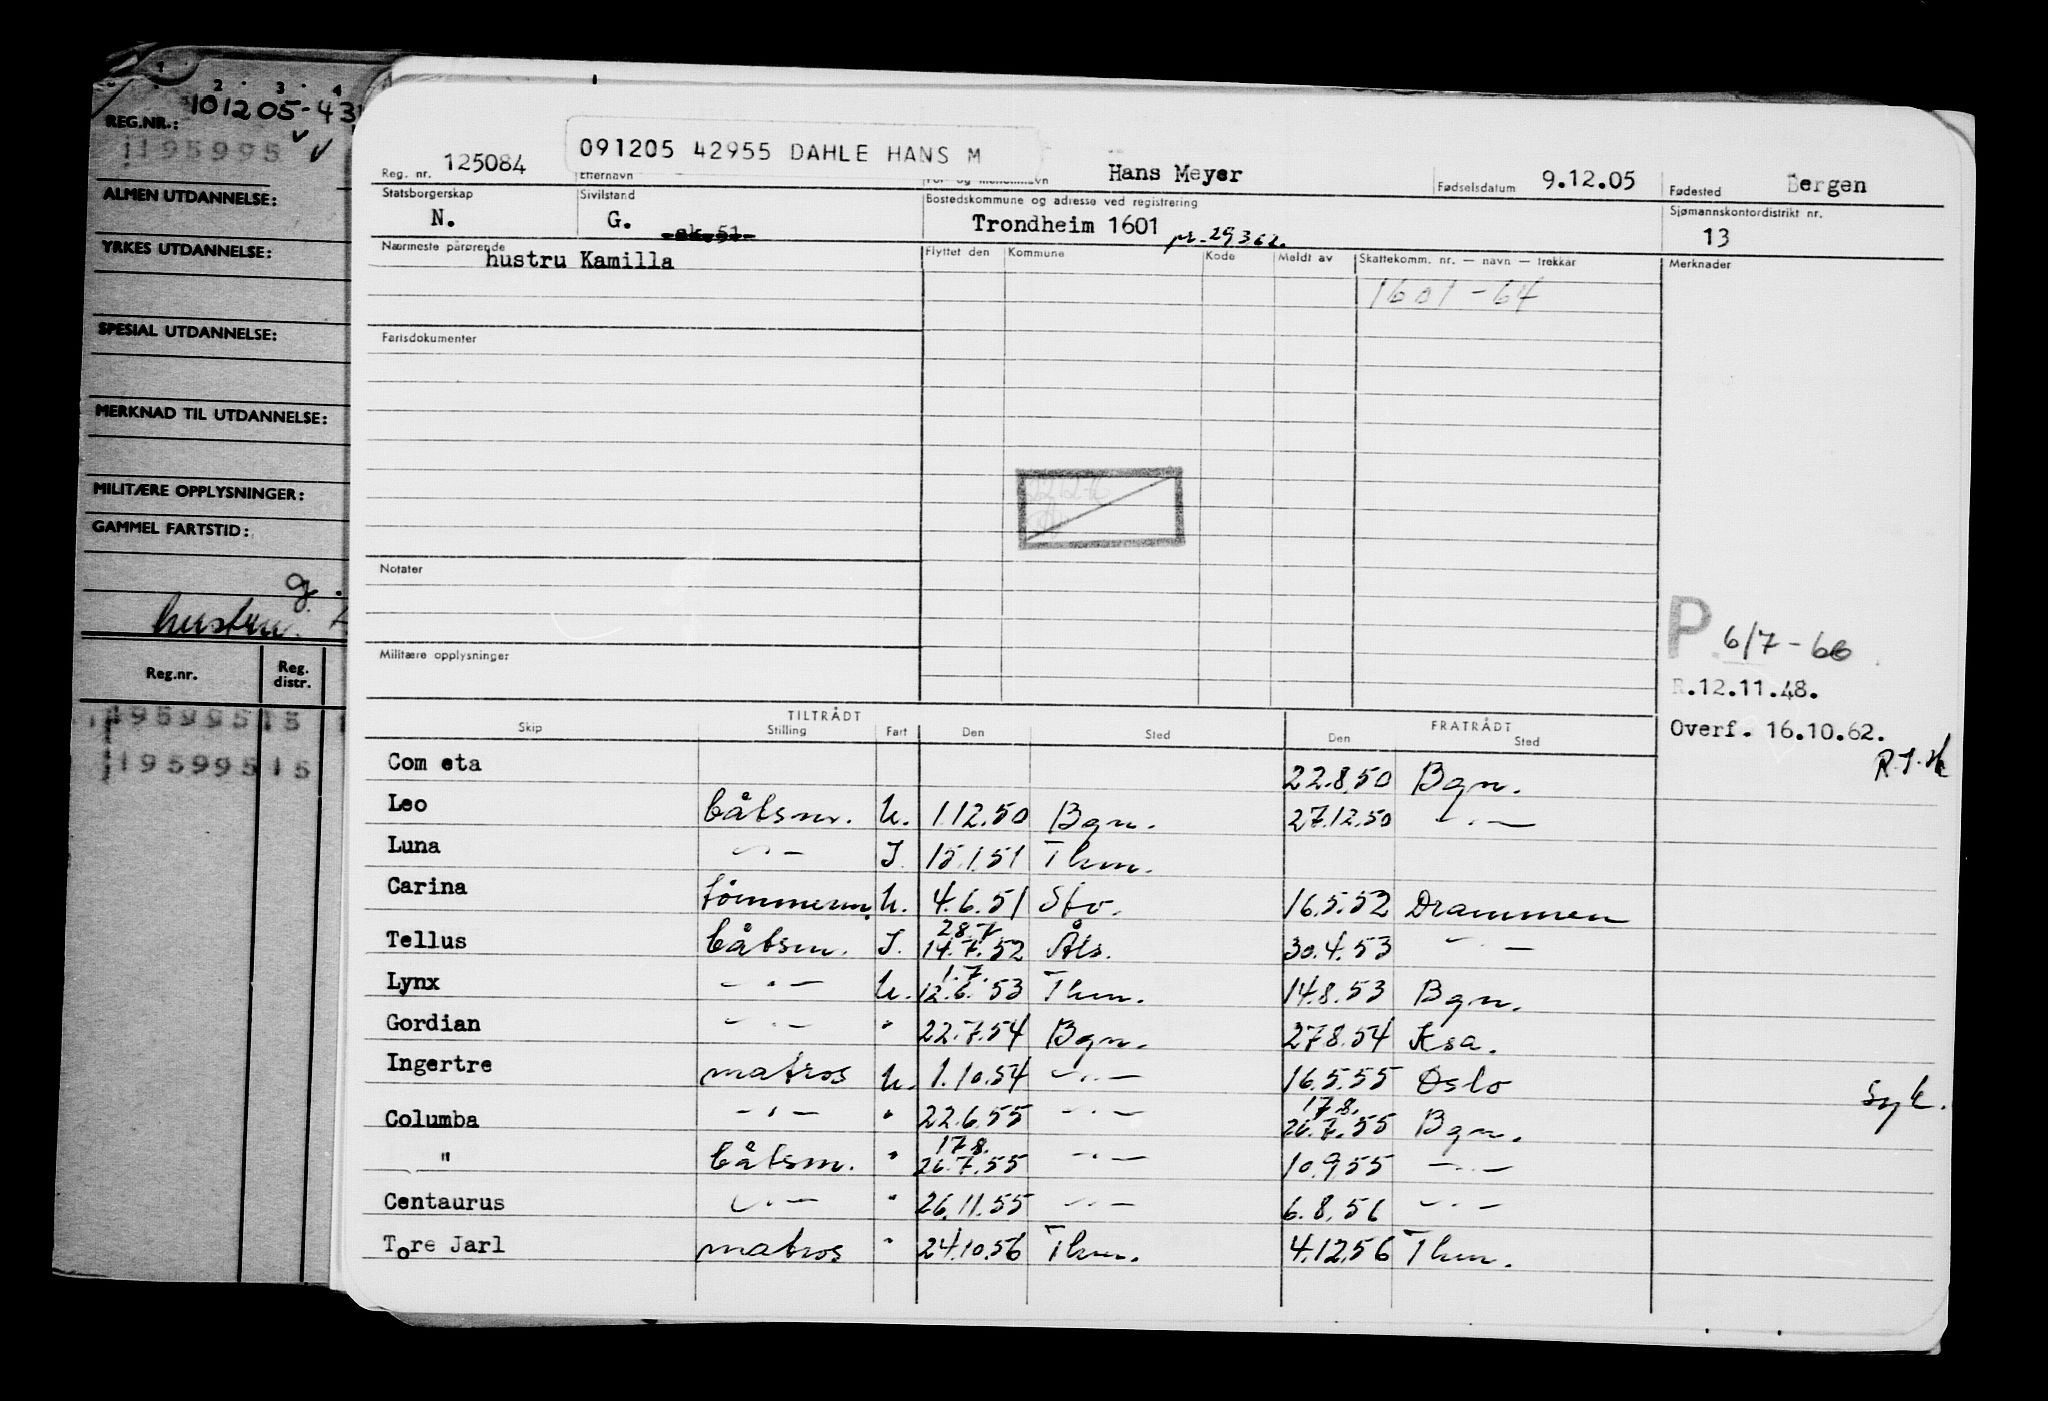 1 2 3 4
REG.NR.: 101205-43
195995
ALMEN UTDANNELSE:
YRKES UTDANNELSE:
SPESIAL UTDANNELSE:
MERKNAD TIL UTDANNELSE:
MILITÆRE OPPLYSNINGER:
GAMMEL FARTSTID:
g.
hustru.
Reg.nr. Reg. distr.
195995 15
195995 15
Reg. nr. 125084 091205 42955 DAHLE HANS M Hans Meyer Fødselsdatum 9.12.05 Fødested Bergen
Efternavn For- og mellomnavn
Statsborgerskap Sivilstand Bostedskommune og adresse ved registrering Sjømannskontordistrikt nr.
N. G. sk.51 Trondheim 1601 pr. 29362. 13
Nærmeste pårørende Flyttet den Kommune Kode Meldt av Skattekomm. nr. — navn — trekkår Merknader
hustru Kamilla
1601-64
Fartsdokumenter
Notater
Militære opplysninger
P 6/7-66
R.12.11.48.
Overf. 16.10.62.
TILTRÅDT FRATRÅDT
Skip Stilling Fart Den Sted Den Sted
Com eta 22.8.50 Bgn.
Leo båtsm. U. 1.12.50 Bgn. 27.12.50 -"-
Luna -"- I. 15.1.51 Thm.
Carina tømmerm. U. 4.6.51 Sto. 16.5.52 Drammen
28.7
Tellus båtsm. I. 14.7.52 Åls. 30.4.53 -"-
1.7.
Lynx -"- U. 12.6.53 Thm. 14.8.53 Bgn.
Gordian -"- " 22.7.54 Bgn. 27.8.54 Ksa.
Ingertre matros U. 1.10.54 -"- 16.5.55 Oslo syk.
17.8.
Columba -"- " 22.6.55 -"- 26.7.55 Bgn.
17.8.
" båtsm. " 26.7.55 -"- 10.9.55 -"-
Centaurus -"- " 26.11.55 -"- 6.8.56 -"-
Tore Jarl matros " 24.10.56 Thm. 4.12.56 Thm.